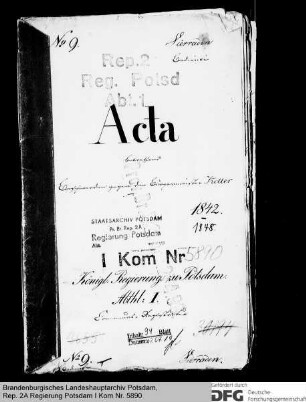 No 9.
Rep.2
Reg. Potsd
Abt.1
Acta
betreffend
Beschwerden gegen den Bürgermeister Keller
1842.
1848
STAATSARCHIV POTSDAM
Pr. Br. Rep. 2A
Regierung Potsdam
I Kom Nr 5890
Königl. Regierung zu Potsdam.
Abthl: I.
Inhalt: 94 Blatt
No 9.
Brandenburgisches Landeshauptarchiv Potsdam,
Rep. 2A Regierung Potsdam I Kom Nr. 5890
Gefördert durch
DFG Deutsche
Forschungsgemeinschaft